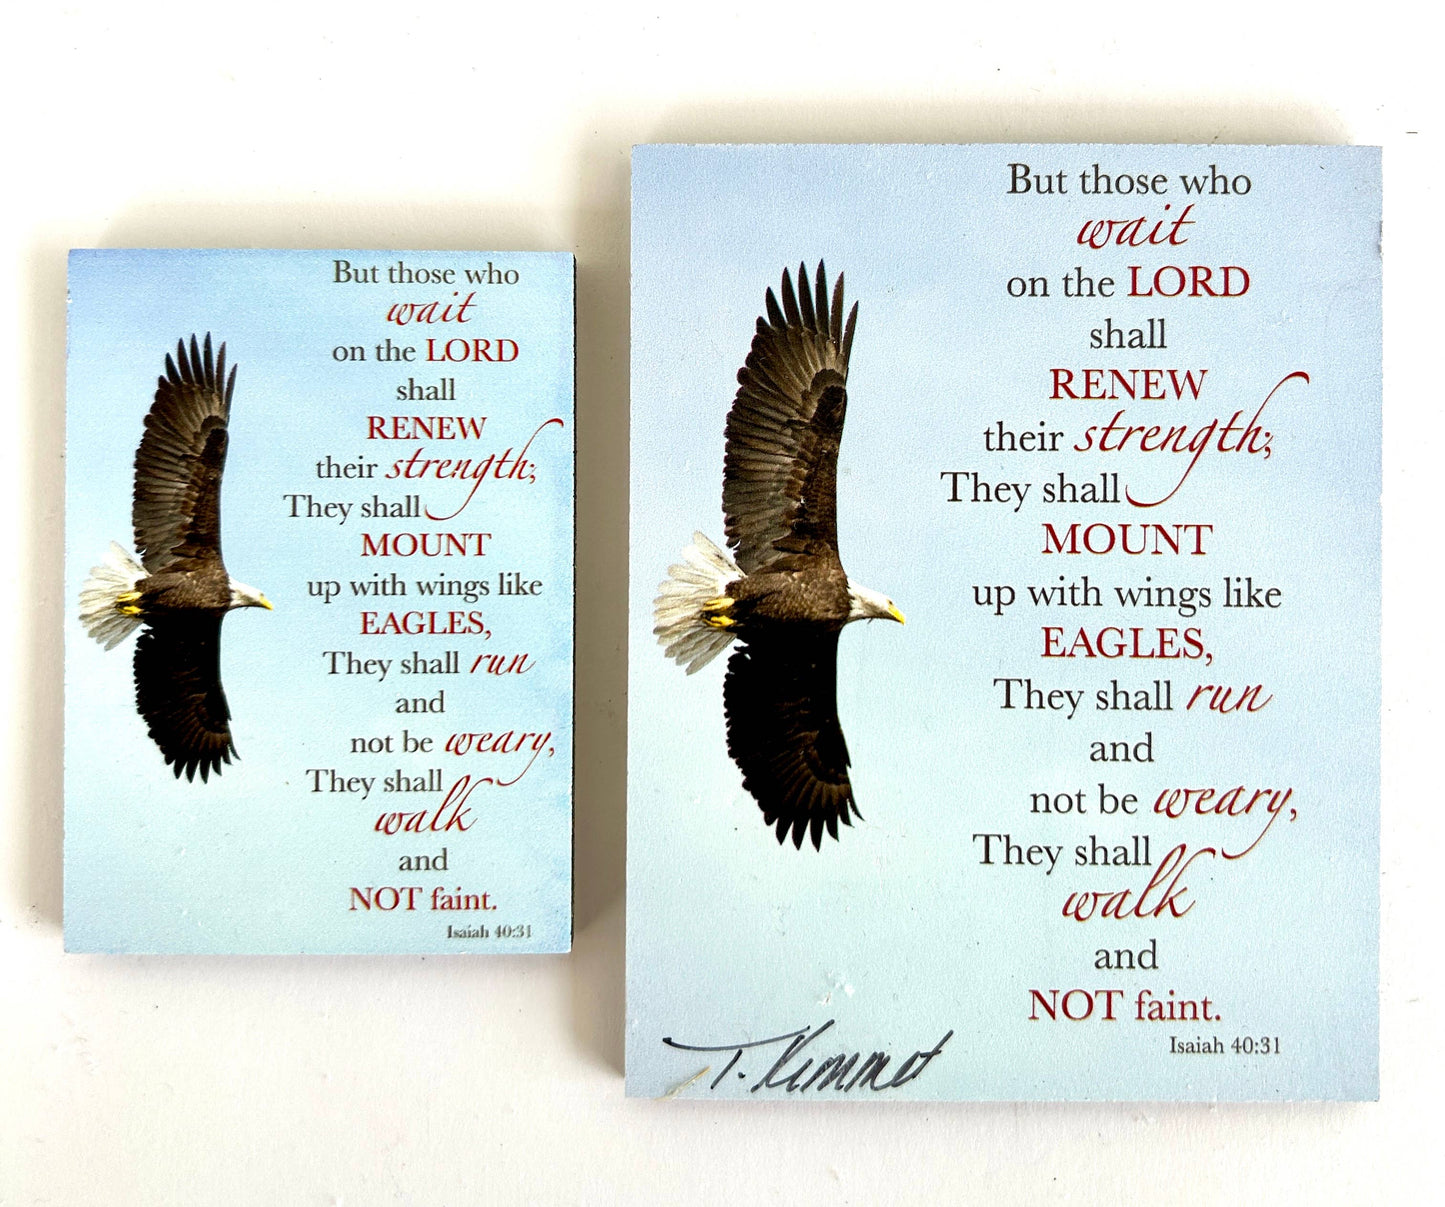 But those who
wait
on the LORD
shall
RENEW
their strength;
They shall
MOUNT
up with wings like
EAGLES,
They shall run
and
not be weary,
They shall
walk
and
NOT faint.
Isaiah 40:31
But those who
wait
on the LORD
shall
RENEW
their strength;
They shall
MOUNT
up with wings like
EAGLES,
They shall run
and
not be weary,
They shall
walk
and
NOT faint.
Isaiah 40:31
T. Kemmet